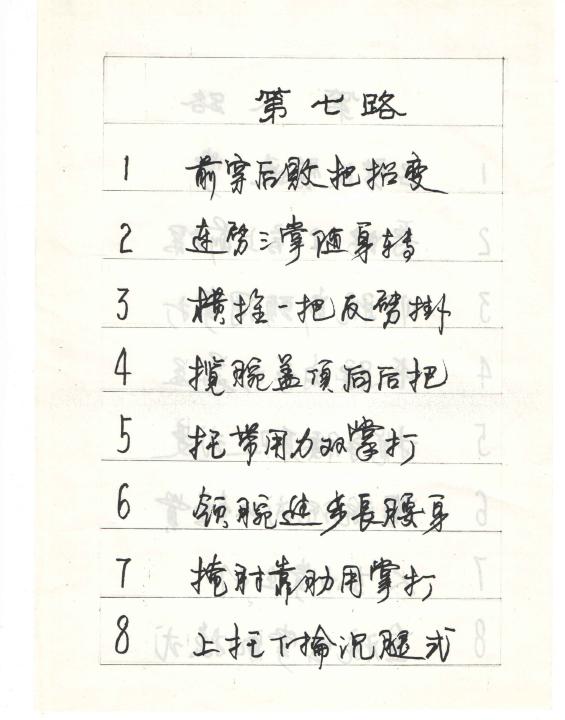 第七路
1 前穿后败把招变
2 连劈三掌随身转
3 横推一把反劈掛
4 揽腕盖頂向后把
5 托带用力双掌打
6 领腕进步長腰身
7 掩肘靠肋用掌打
8 上托下掄沉腿式